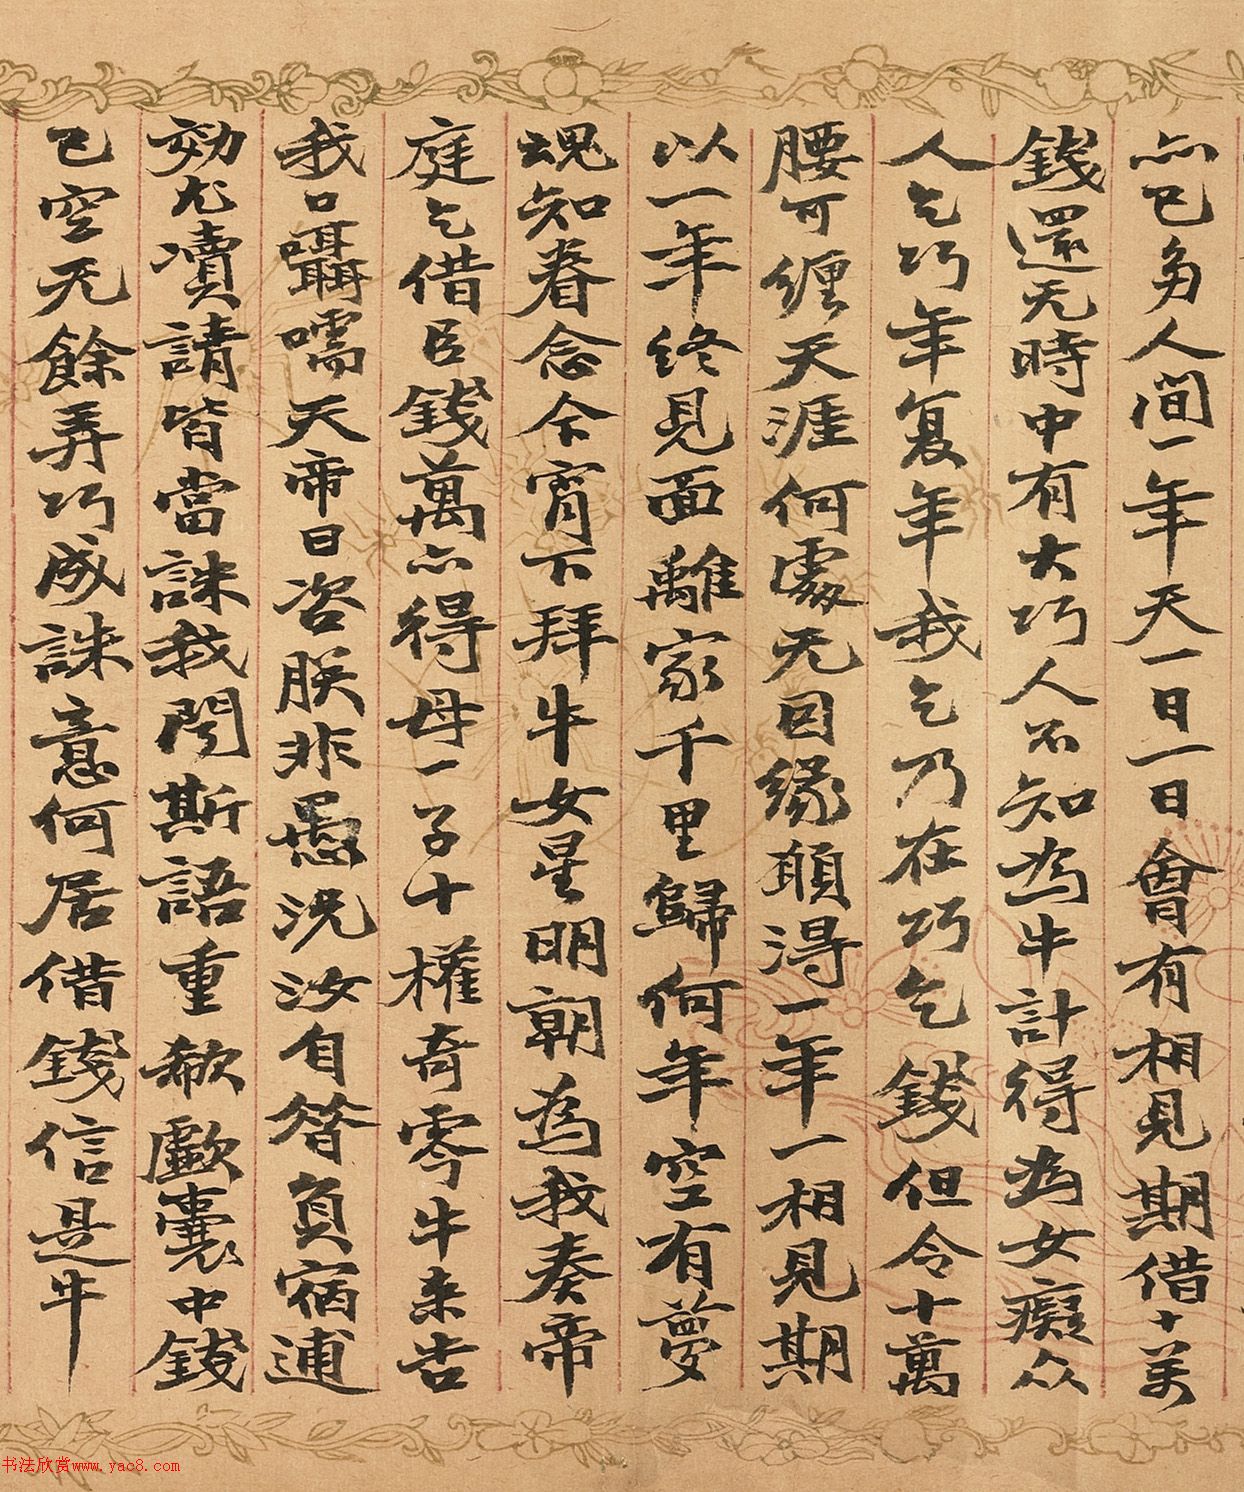 亦已多人間一年天一日一日會有相見期借十万
錢還无時中有大巧人不知為牛計得為女癡众
人乞巧年复年我乞乃在巧乞錢但令十萬
腰可纏天涯何處无因緣頋得一年一相見期
以一年終見面離家千里歸何年空有夢
魂知眷念今宵下拜牛女星明朝為我奏帝
庭乞借臣錢萬亦得母一子十權奇零牛來告
我口囁嚅天帝曰咨朕非愚況汝自替負宿逋
効尤瀆請皆當誅我聞斯語重欷歔囊中錢
已空无餘弄巧成誅意何居借錢信是牛
书法欣赏www.yac8.com